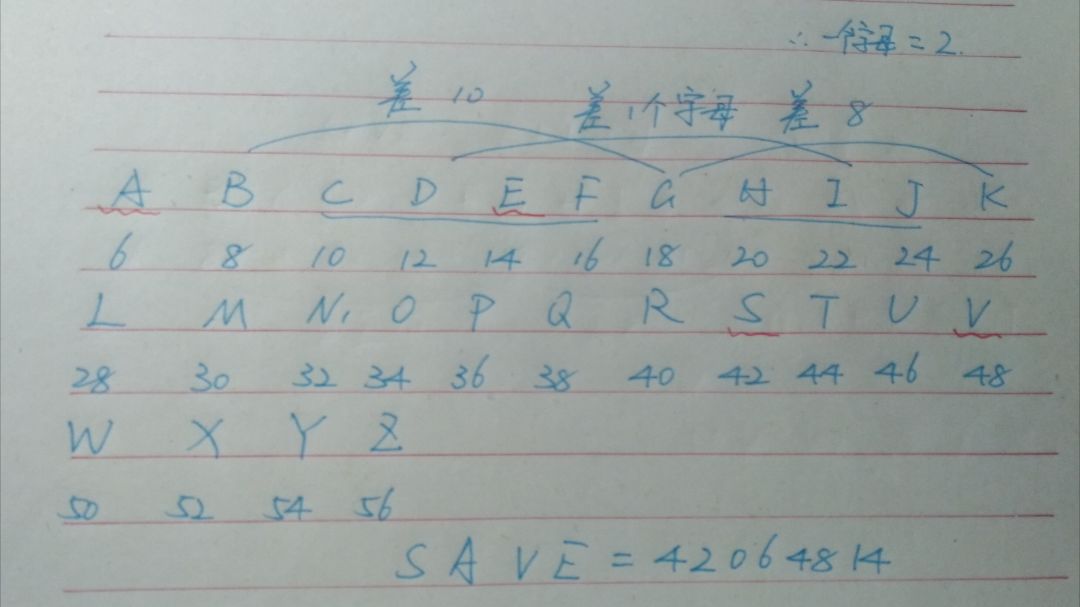 ∴一个字母=2.
差10 差1个字母 差8
A B C D E F G H I J K
6 8 10 12 14 16 18 20 22 24 26
L M N. O P Q R S T U V
28 30 32 34 36 38 40 42 44 46 48
W X Y Z
50 52 54 56
SAVE=42064814